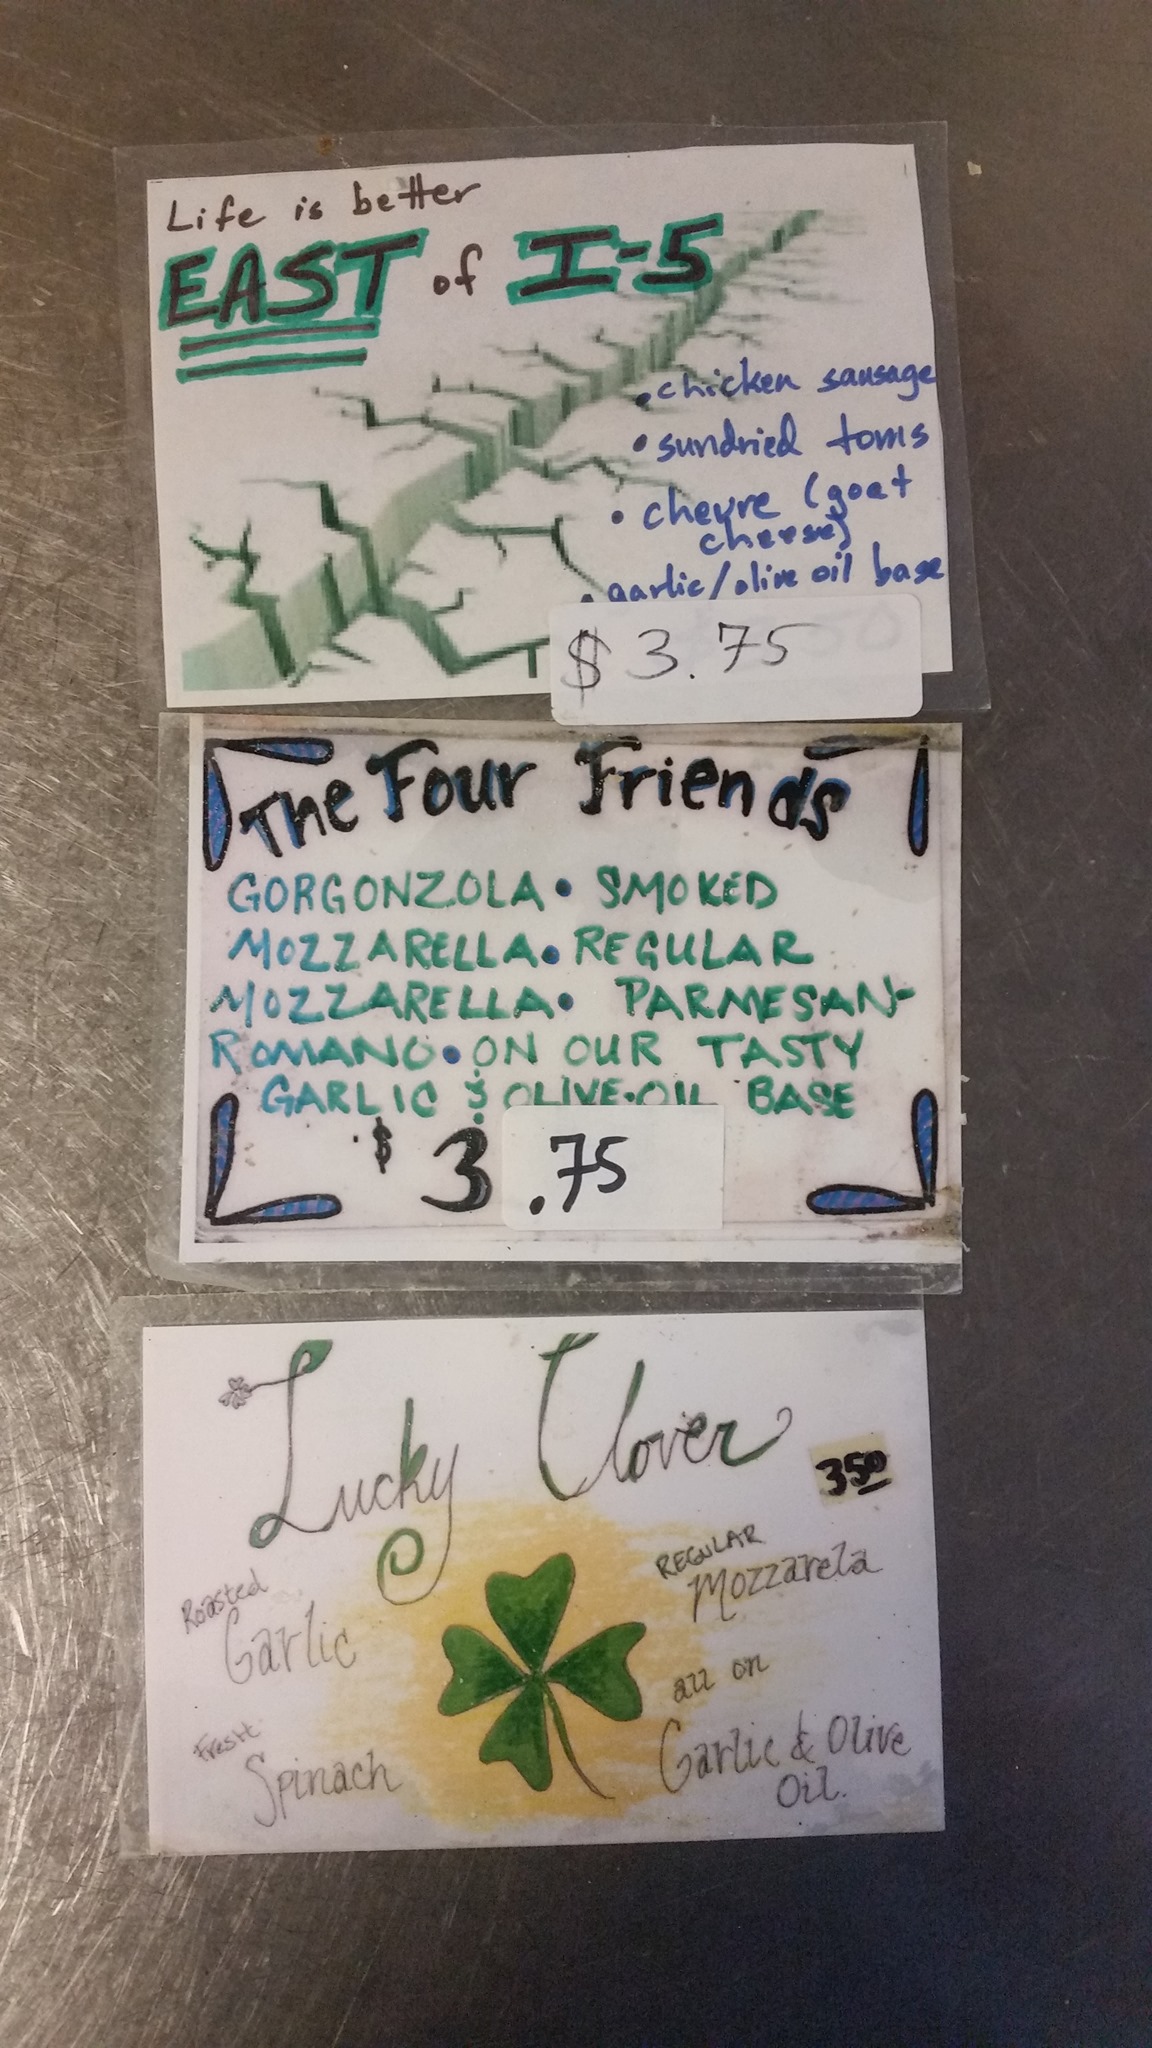 Life is better
EAST of I-5
• chicken sausage
• sundried toms
• chevre (goat
cheese)
• garlic/olive oil base
$3.75
The Four Friends
GORGONZOLA • SMOKED
MOZZARELLA • REGULAR
MOZZARELLA • PARMESAN-
ROMANO • ON OUR TASTY
GARLIC & OLIVE•OIL BASE
$3.75
Lucky Clover
350
Roasted
Garlic
Fresh
Spinach
REGULAR
Mozzarela
all on
Garlic & Olive
Oil.